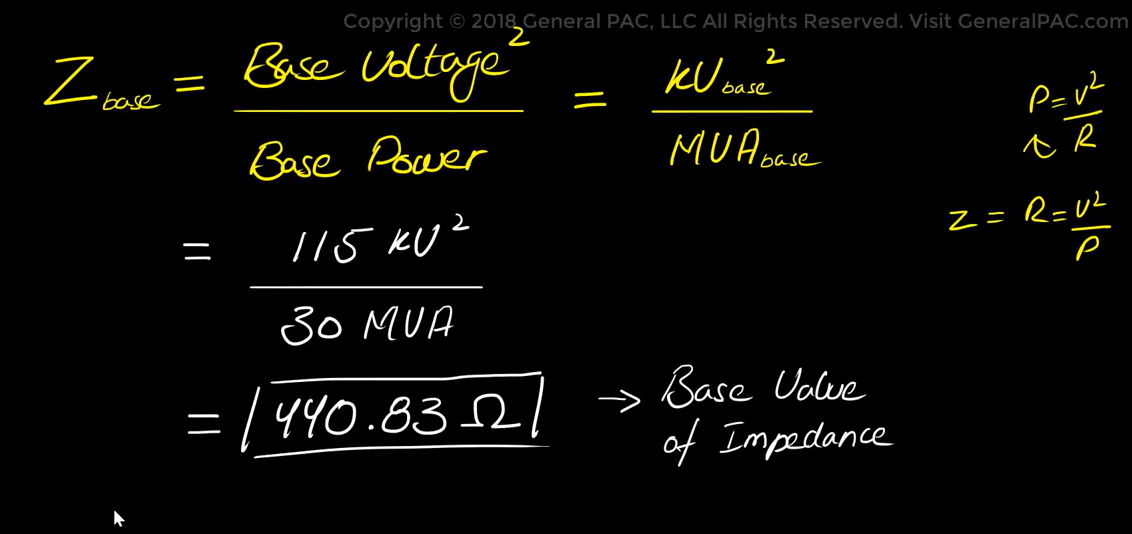 Copyright © 2018 General PAC, LLC All Rights Reserved. Visit GeneralPAC.com
Z base = Base Voltage² / Base Power = kV base² / MVA base
P = V² / R
Z = R = V² / P
= 115 kV² / 30 MVA
= 440.83 Ω → Base Value
of Impedance